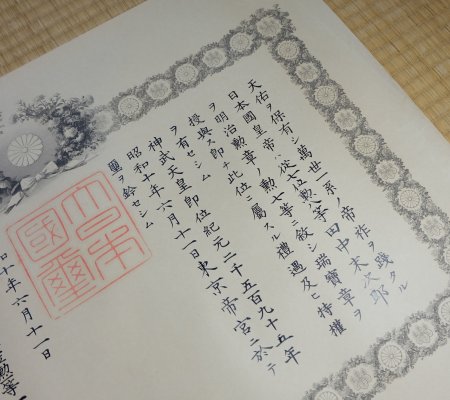 天佑ヲ保有シ萬世一系ノ帝祚ヲ踐タル
日本國皇帝ハ從七位勲八等田中末次郎
ヲ明治勲章ノ勲七等ニ敘シ瑞寶章ヲ
授與ス即チ此位ニ屬スル禮遇及ヒ特權
ヲ有セシム
神武天皇即位紀元二千五百九十五年
昭和十年六月十一日東京帝宮ニ於テ
璽ヲ鈐セシム
大日本
國璽
和十年六月十一日
勲等